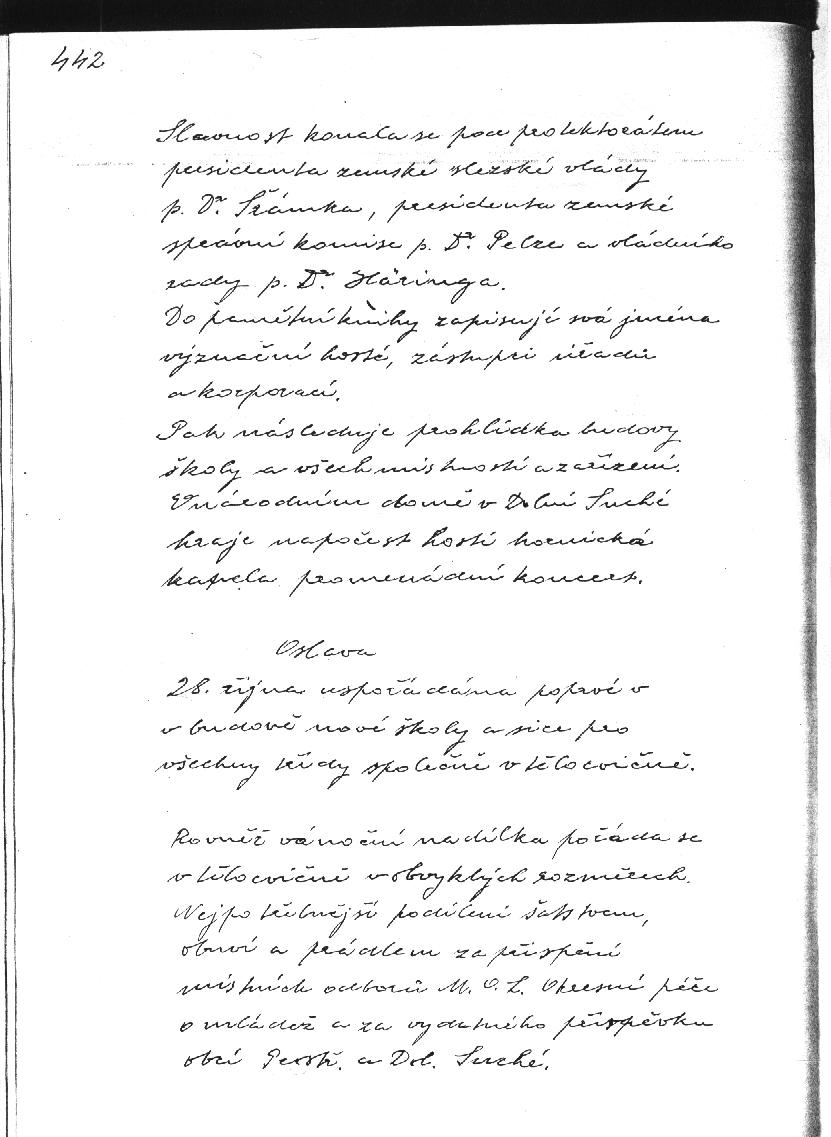 442
Slavnost konala se pod protektorátem
presidenta zemské slezské vlády
p. Dr. Šrámka, presidenta zemské
správní komise p. Dr. Pelze a vládního
rady p. Dr. Häringa.
Do pamětní knihy zapisují svá jména
význační hosté, zástupci úřadů
a korporací.
Pak následuje prohlídka budovy
školy a všech místností a zařízení.
V národním domě v Dolní Suché
hraje na počest hostí hornická
kapela promenádní koncert.
Oslava
28. října uspořádána poprvé v
v budově nové školy a sice pro
všechny třídy společně v tělocvičně.
Rovněž vánoční nadílka pořáda se
v tělocvičně v obvyklých rozměrech.
Nejpotřebnější poděleni šatstvem,
obuví a prádlem za přispění
místních odborů M. O. L. Okresní péče
o mládež a za vydatného příspěvku
obcí Prostř. a Dol. Suché.